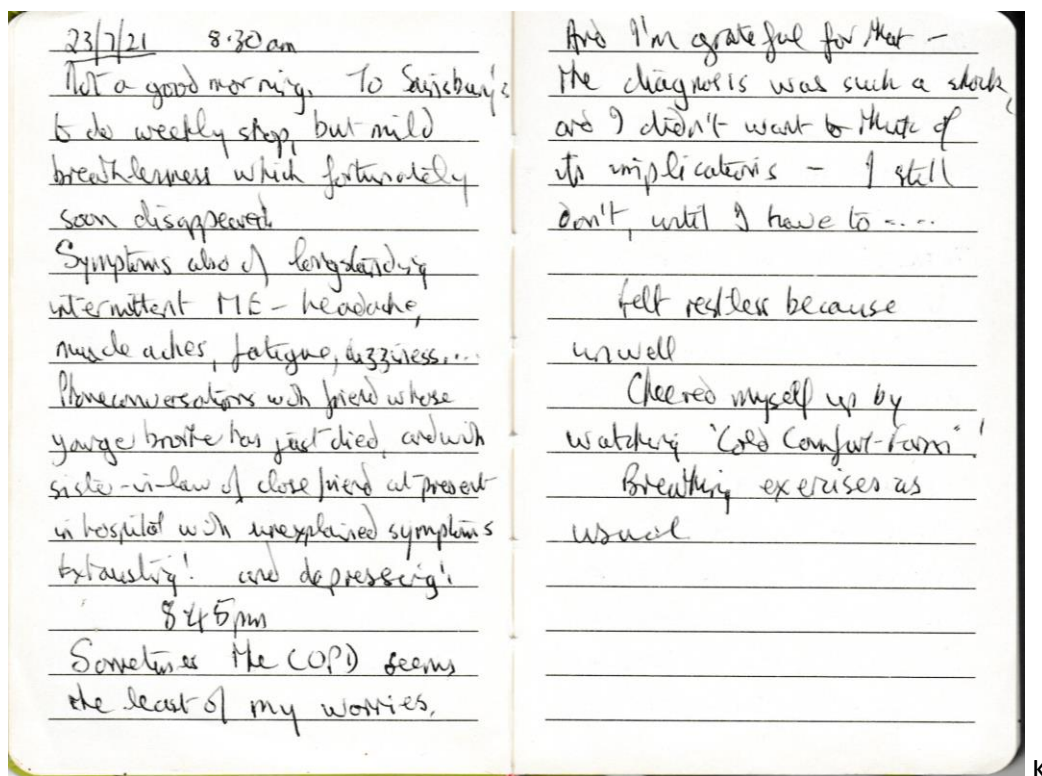 23/7/21 8.30am
Not a good morning. To Sainsbury's
to do weekly shop, but mild
breathlessness which fortunately
soon disappeared.
Symptoms also of longstanding
intermittent ME – headache,
muscle aches, fatigue, dizziness....
Phone conversations with friend whose
younger brother has just died, and with
sister-in-law of close friend at present
in hospital with unexplained symptoms
Exhausting! and depressing!
8.45pm
Sometimes the COPD seems
the least of my worries.
And I'm grateful for that –
the diagnosis was such a shock,
and I didn't want to think of
its implications – I still
don't, until I have to .....
Felt restless because
unwell
Cheered myself up by
watching 'Cold Comfort Farm'!
Breathing exercises as
usual
K